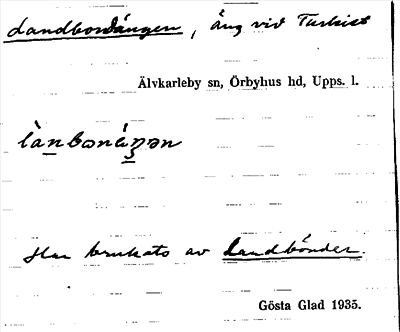 Landbondängen, äng vid Tarkist
Älvkarleby sn, Örbyhus hd, Upps. l.
lànbonáŋən
Har brukats av Landbönder.
Gösta Glad 1935.